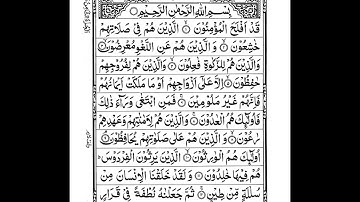 بِسْمِ اللّٰهِ الرَّحْمٰنِ الرَّحِيْمِ
قَدْ اَفْلَحَ الْمُؤْمِنُوْنَ ۙ الَّذِيْنَ هُمْ فِيْ صَلَاتِهِمْ
خٰشِعُوْنَ ۙ وَالَّذِيْنَ هُمْ عَنِ اللَّغْوِ مُعْرِضُوْنَ ۙ
وَالَّذِيْنَ هُمْ لِلزَّكٰوةِ فٰعِلُوْنَ ۙ وَالَّذِيْنَ هُمْ لِفُرُوْجِهِمْ
حٰفِظُوْنَ ۙ اِلَّا عَلٰٓى اَزْوَاجِهِمْ اَوْ مَا مَلَكَتْ اَيْمَانُهُمْ
فَاِنَّهُمْ غَيْرُ مَلُوْمِيْنَ ۚ فَمَنِ ابْتَغٰى وَرَآءَ ذٰلِكَ
فَاُولٰٓئِكَ هُمُ الْعٰدُوْنَ ۚ وَالَّذِيْنَ هُمْ لِاَمٰنٰتِهِمْ وَعَهْدِهِمْ
رٰعُوْنَ ۙ وَالَّذِيْنَ هُمْ عَلٰى صَلَوٰتِهِمْ يُحَافِظُوْنَ ۘ
اُولٰٓئِكَ هُمُ الْوٰرِثُوْنَ ۙ الَّذِيْنَ يَرِثُوْنَ الْفِرْدَوْسَ
هُمْ فِيْهَا خٰلِدُوْنَ وَلَقَدْ خَلَقْنَا الْاِنْسَانَ مِنْ
سُلٰلَةٍ مِّنْ طِيْنٍ ۚ ثُمَّ جَعَلْنٰهُ نُطْفَةً فِيْ قَرَارٍ